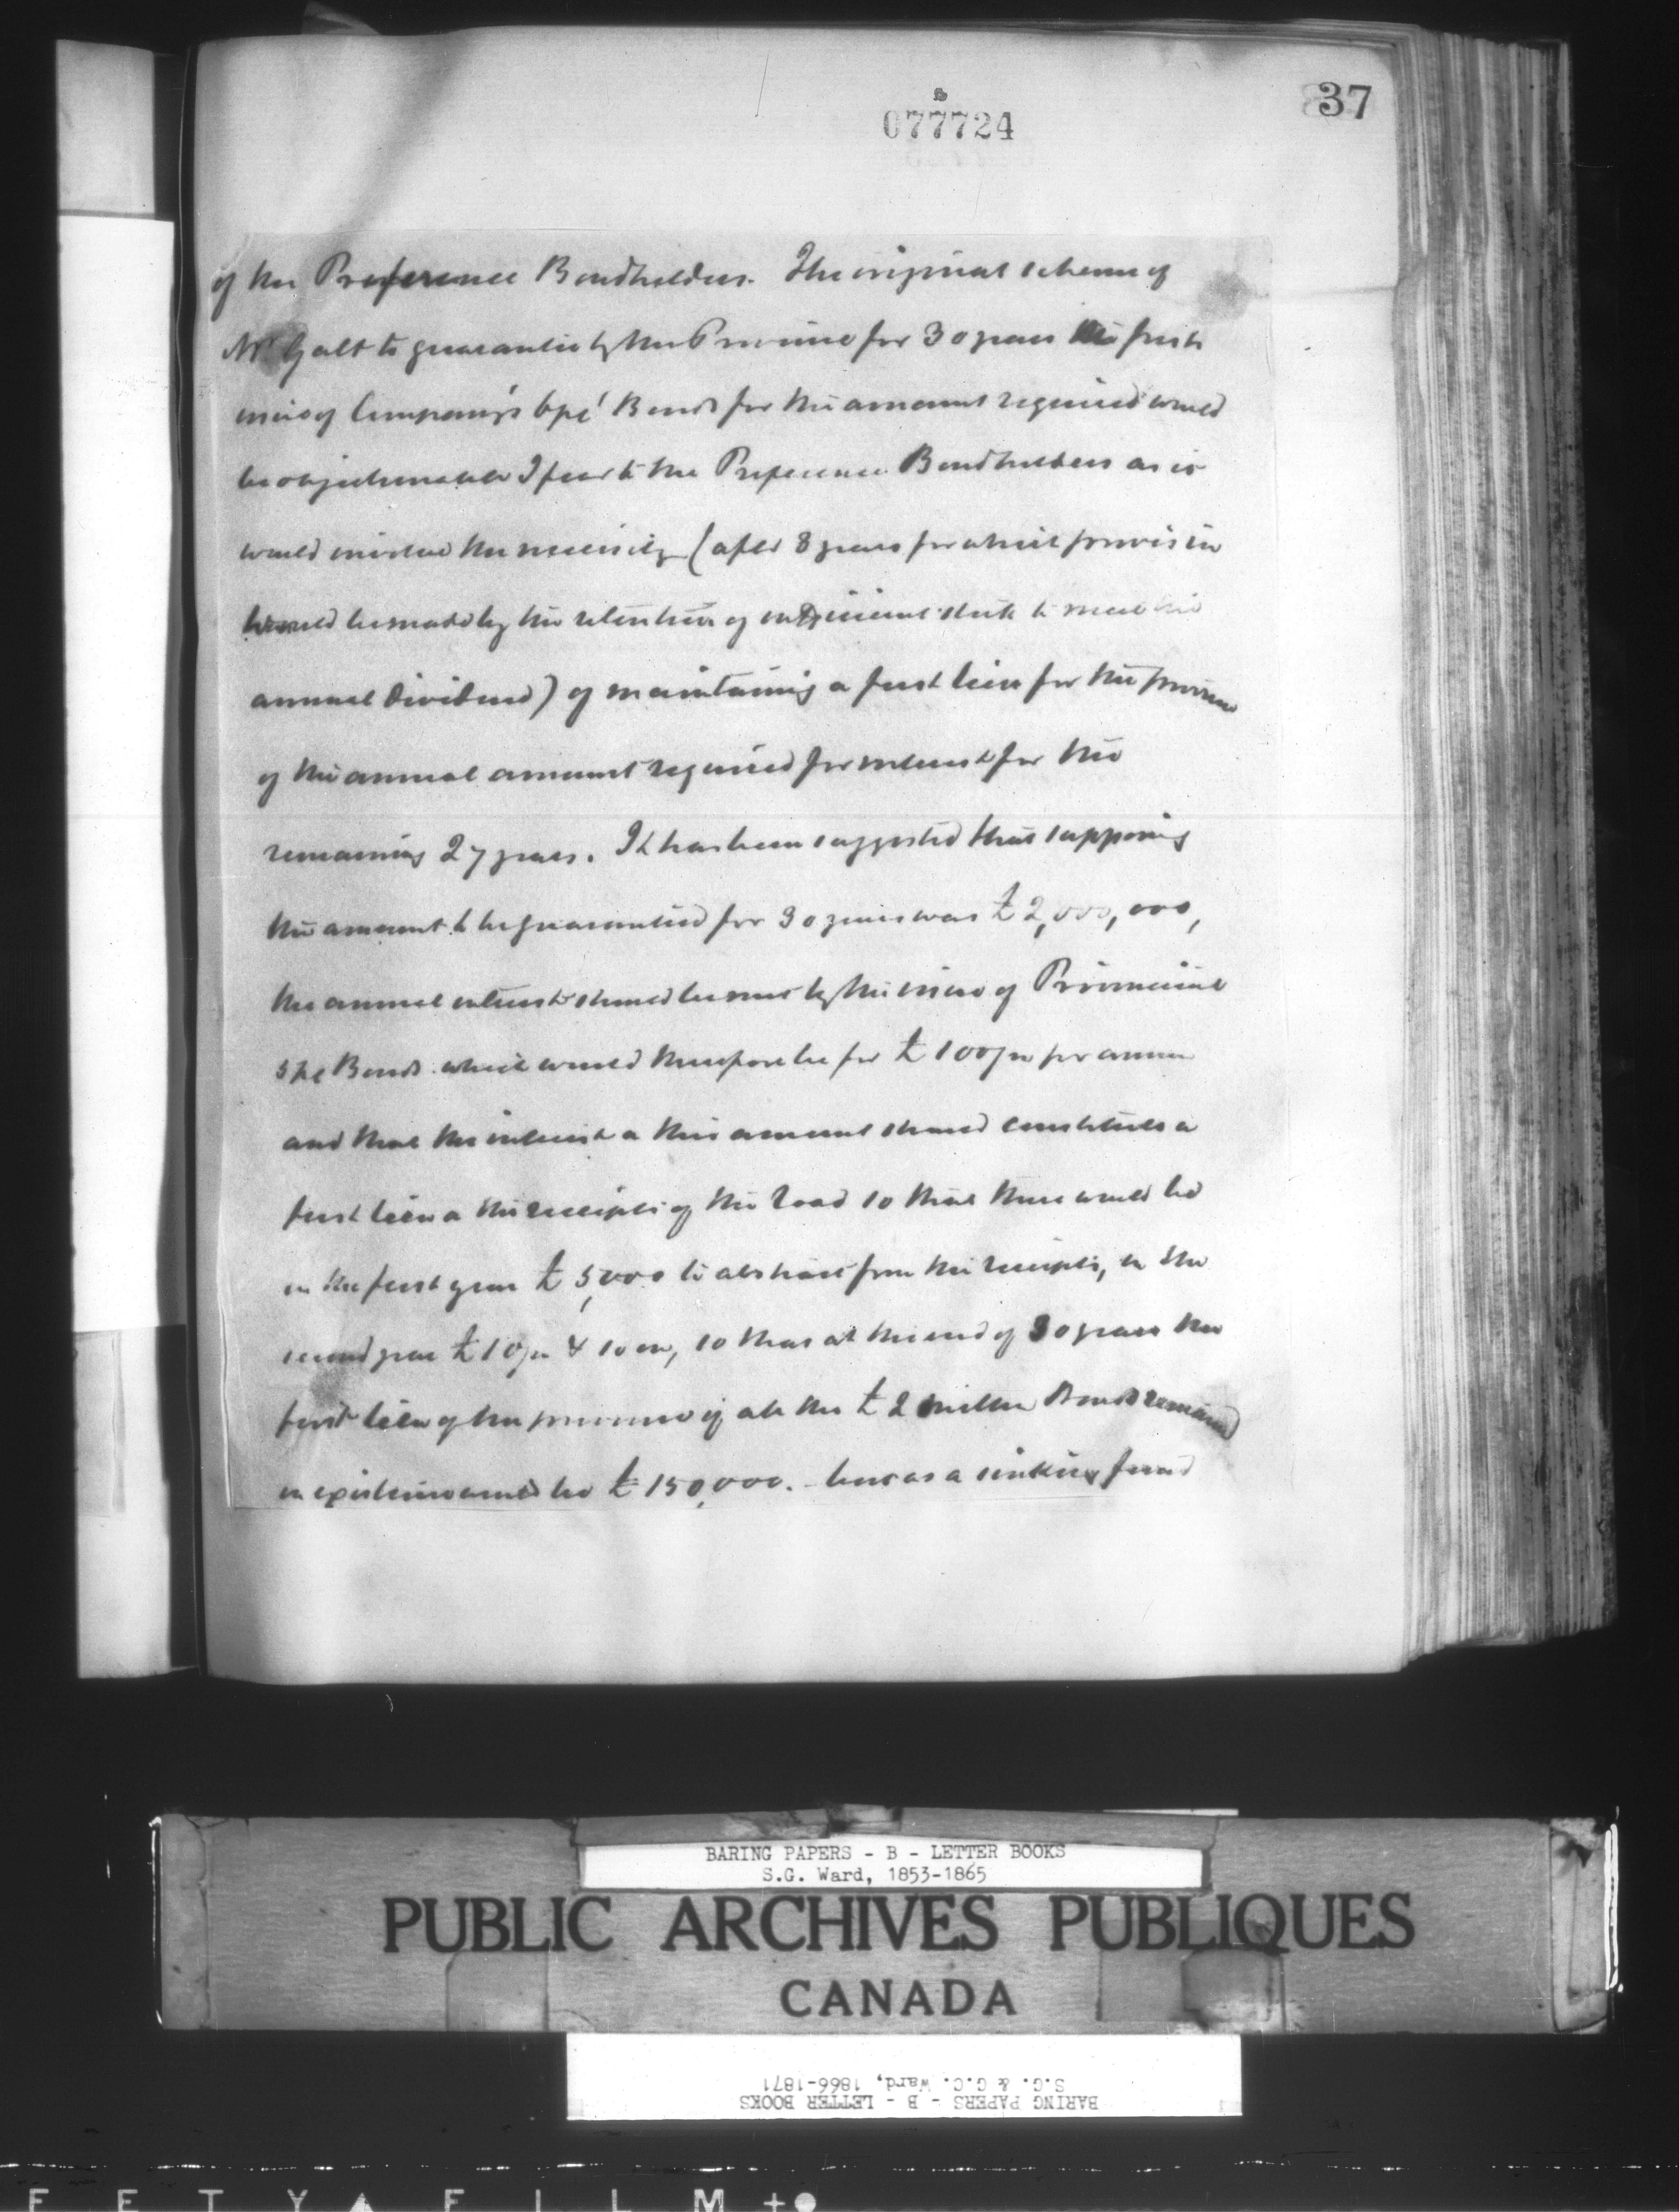 37
077724
of the Preference Bondholders. The original scheme of
Mr Galt to guarantee by the Province for 30 years the fresh
issue of Company's 6 pct Bonds for the amount required would
be objectionable I fear to the Preference Bondholders as it
would involve the necessity (after 8 years for which provision
would be made by the retention of sufficient stock to meet the
annual dividend) of maintaining a first lien for the province
of the annual amount required for interest for the
remaining 27 years. It has been suggested that supposing
the amount to be guaranteed for 30 years was £2,000,000,
the annual interest should be met by the issue of Provincial
5 pc Bonds which would therefore be for £100/m per annum
and that the interest on this amount should constitute a
first lien on the receipts of the road so that there would be
in the first year £5,000 to abstract from the receipts, in the
second year £10/m & so on, so that at the end of 30 years the
first lien of the province if all the £2 million Bonds remained
in existence would be £150,000. - but as a sinking fund
BARING PAPERS - B - LETTER BOOKS
S.G. Ward, 1853-1865
PUBLIC ARCHIVES PUBLIQUES
CANADA
BARING PAPERS - B - LETTER BOOKS
S.G. & G.C. Ward, 1866-1871
F E T Y ▲ F I L M +●